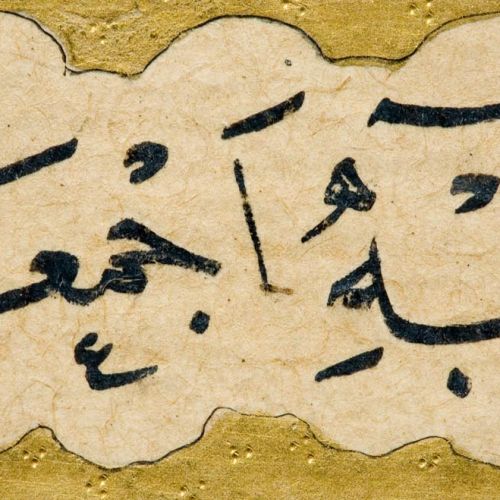 بِهِ اَجْمَع